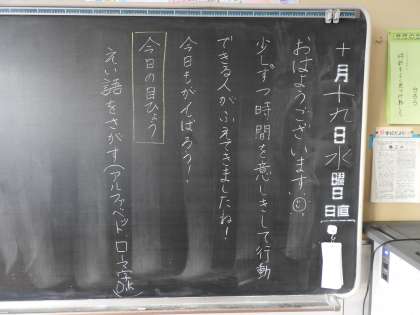 十月十九日水曜日
日直
おはようございます。
少しずつ時間を意しきして行動
できる人がふえてきましたね!
今日もがんばろう!
今日の目ひょう
えい語をさがす(アルファベット、ローマ字など)